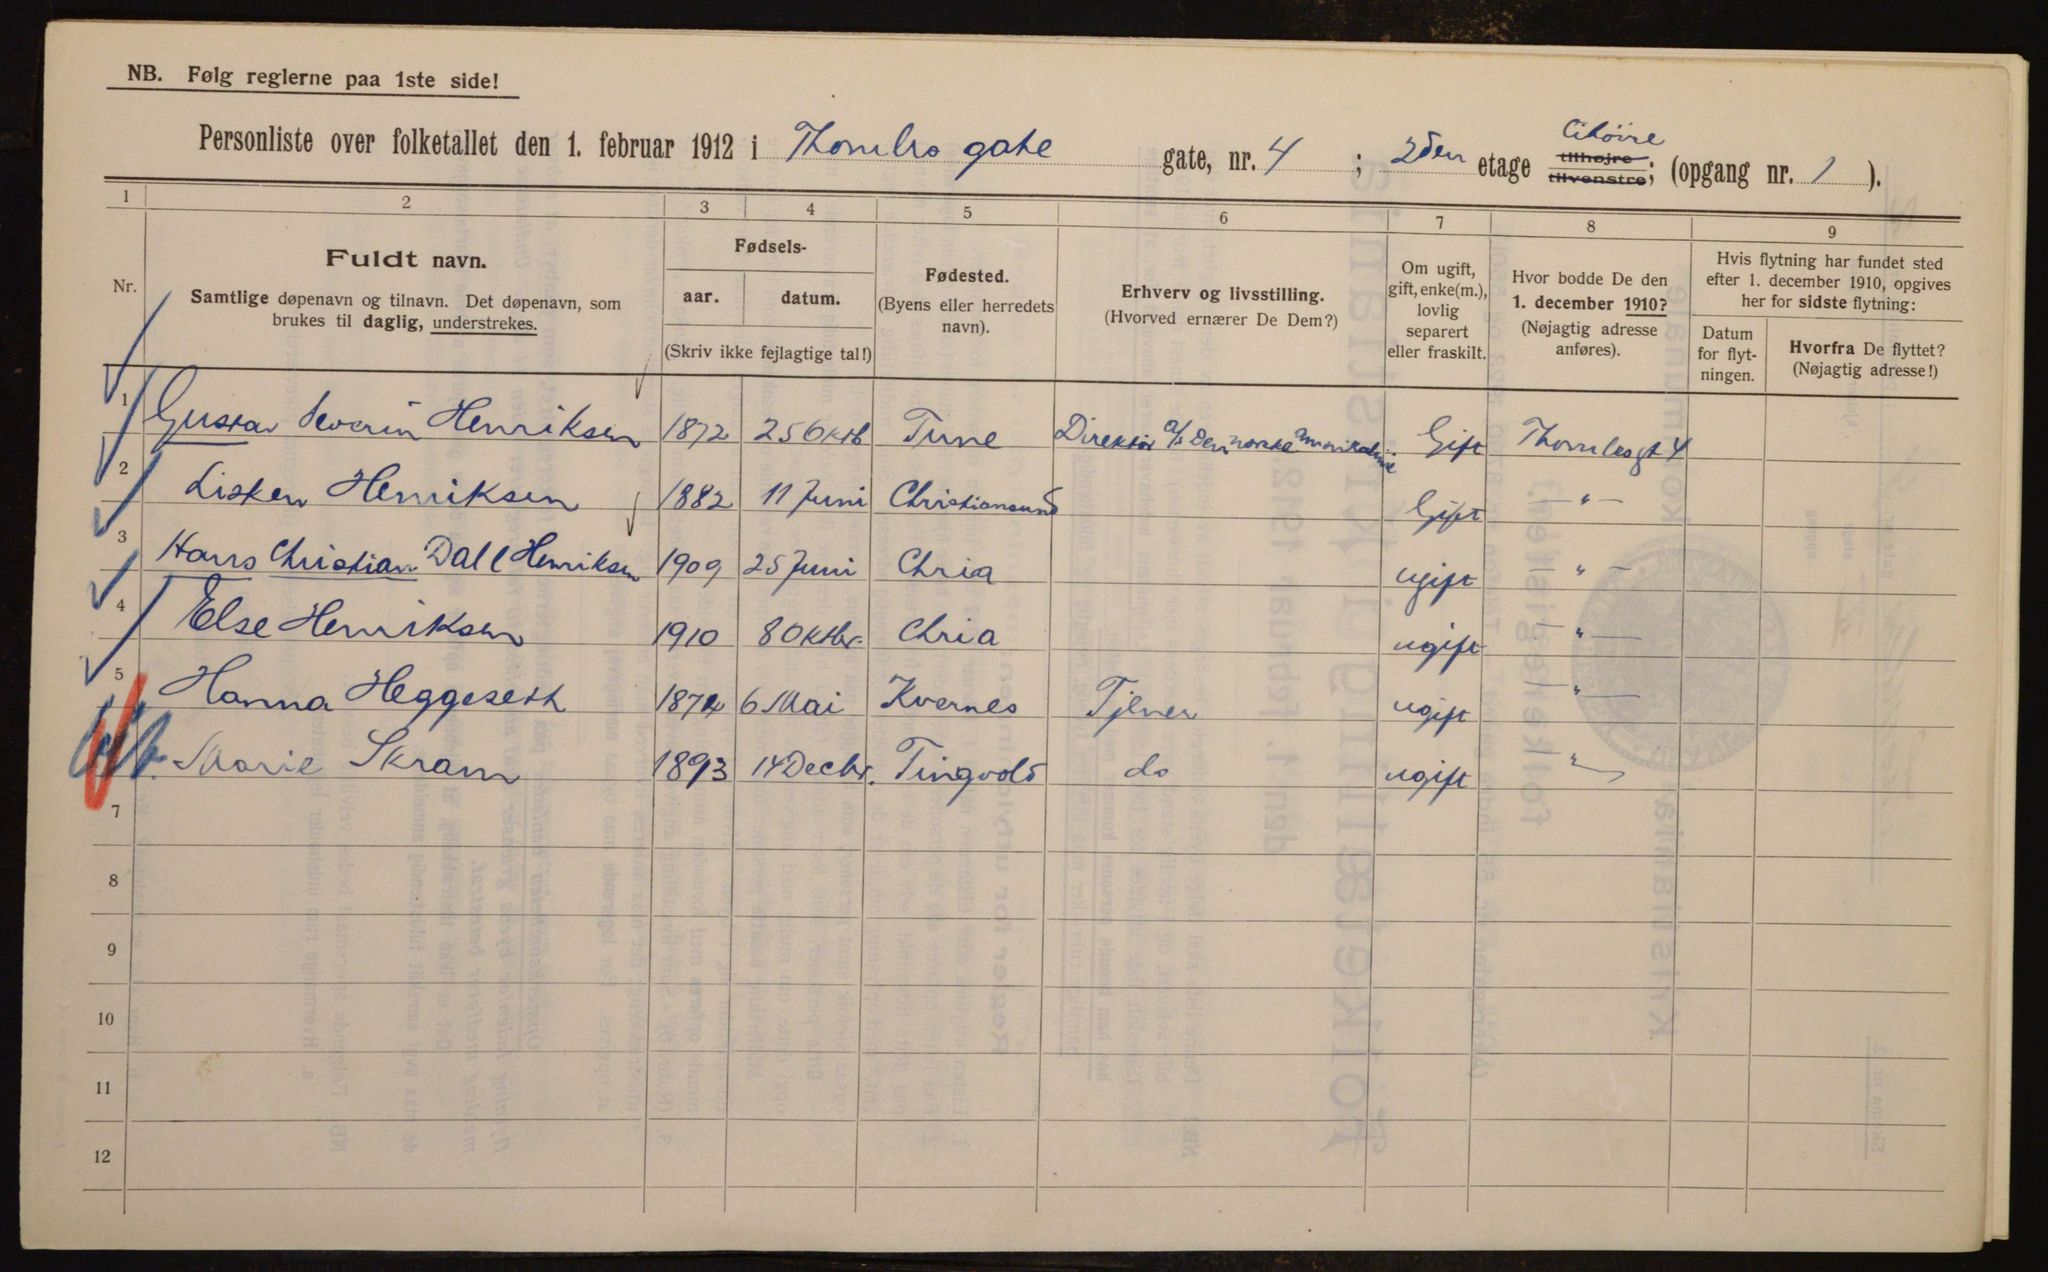 NB. Følg reglerne paa 1ste side!
Personliste over folketallet den 1. februar 1912 i Thomles gate gate, nr. 4 ; 2den etage tilhøjre tilvenstre; (opgang nr. 1 ).
1 2 3 4 5 6 7 8 9
Nr.
Fuldt navn.
Samtlige døpenavn og tilnavn. Det døpenavn, som
brukes til daglig, understrekes.
Fødsels-
aar. datum.
(Skriv ikke fejlagtige tal!)
Fødested.
(Byens eller herredets
navn).
Erhverv og livsstilling.
(Hvorved ernærer De Dem?)
Om ugift,
gift, enke(m.),
lovlig
separert
eller fraskilt.
Hvor bodde De den
1. december 1910?
(Nøjagtig adresse
anføres).
Hvis flytning har fundet sted
efter 1. december 1910, opgives
her for sidste flytning:
Datum
for flyt-
ningen.
Hvorfra De flyttet?
(Nøjagtig adresse!)
1 Gustav Severin Henriksen 1872 25 Oktb Tune Direktør a/s Den norske Gift Thomlesgt 4
2 Lisken Henriksen 1882 11 Juni Christiansund Gift — " —
3 Hans Christian Dall Henriksen 1909 25 Juni Chria ugift — " —
4 Else Henriksen 1910 8 Oktbr. Chria ugift — " —
5 Hanna Heggeseth 1874 6 Mai Kvernes Tjener ugift — " —
Marie Skram 1893 14 Decbr. Tingvold do ugift — " —
7
8
9
10
11
12